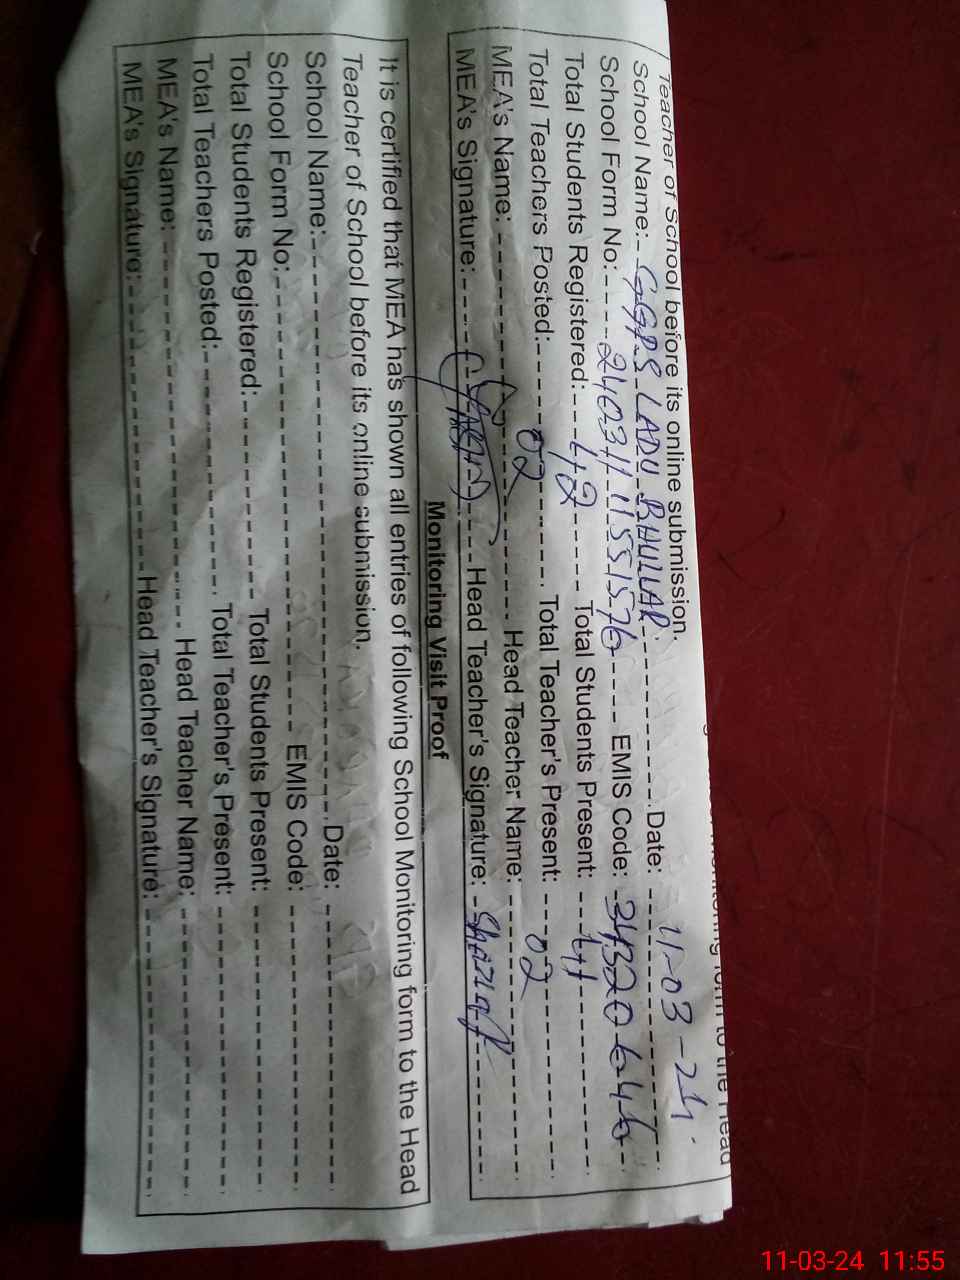 Monitoring form to the Head
Teacher of School before its online submission.
School Name:- GGPS LADU BHULLAR Date: 11-03-24.
School Form No: 240311 11551576 EMIS Code: 34320646
Total Students Registered: 42 Total Students Present: 41
Total Teachers Posted:- 02 Total Teacher's Present: 02
MEA's Name: Head Teacher Name:
MEA's Signature: Head Teacher's Signature: Shazia
Monitoring Visit Proof
It is certified that MEA has shown all entries of following School Monitoring form to the Head
Teacher of School before its online submission.
School Name:- Date:
School Form No: EMIS Code:
Total Students Registered: Total Students Present:
Total Teachers Posted:- Total Teacher's Present:
MEA's Name: Head Teacher Name:
MEA's Signature: Head Teacher's Signature:
11-03-24 11:55